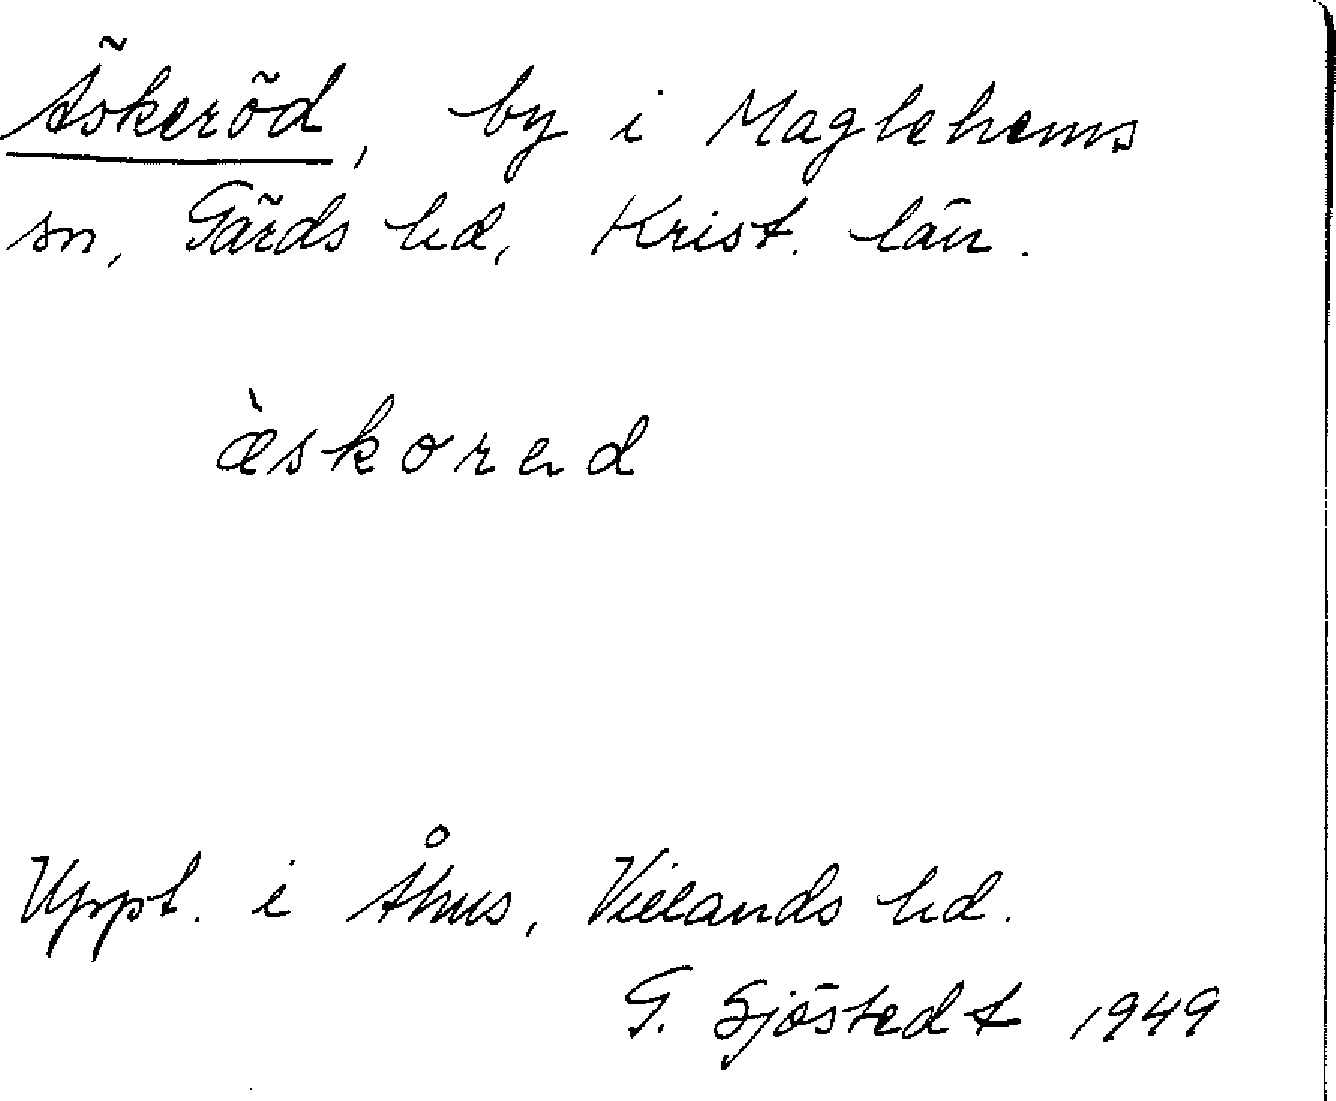 Äskeröd, by i Maglehems
sn, Gärds hd, Krist. län.
æ̀skorəd
Uppt. i Åhus, Villands hd.
G. Sjöstedt 1949